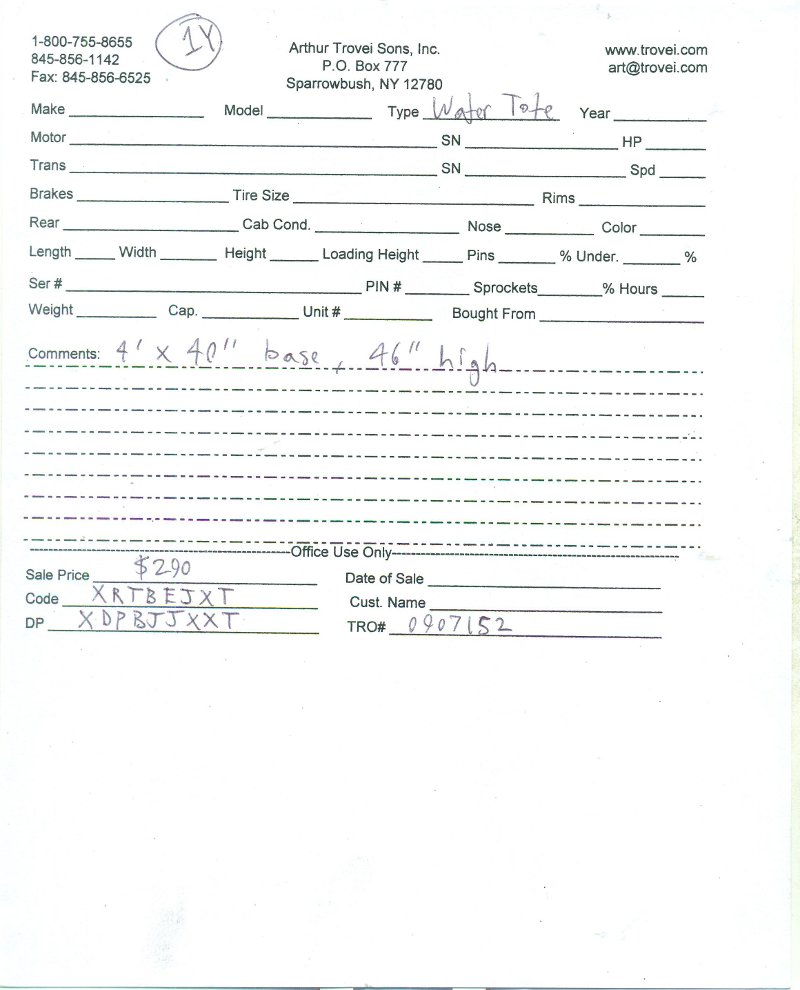 1-800-755-8655
845-856-1142
Fax: 845-856-6525
1Y
Arthur Trovei Sons, Inc.
P.O. Box 777
Sparrowbush, NY 12780
www.trovei.com
art@trovei.com
Make Model Type Water Tote Year
Motor SN HP
Trans SN Spd
Brakes Tire Size Rims
Rear Cab Cond. Nose Color
Length Width Height Loading Height Pins % Under. %
Ser # PIN # Sprockets % Hours
Weight Cap. Unit # Bought From
Comments: 4' x 40" base, 46" high
Office Use Only
Sale Price $290 Date of Sale
Code XRTBEJXT Cust. Name
DP XDPBJJXXT TRO# 0907152